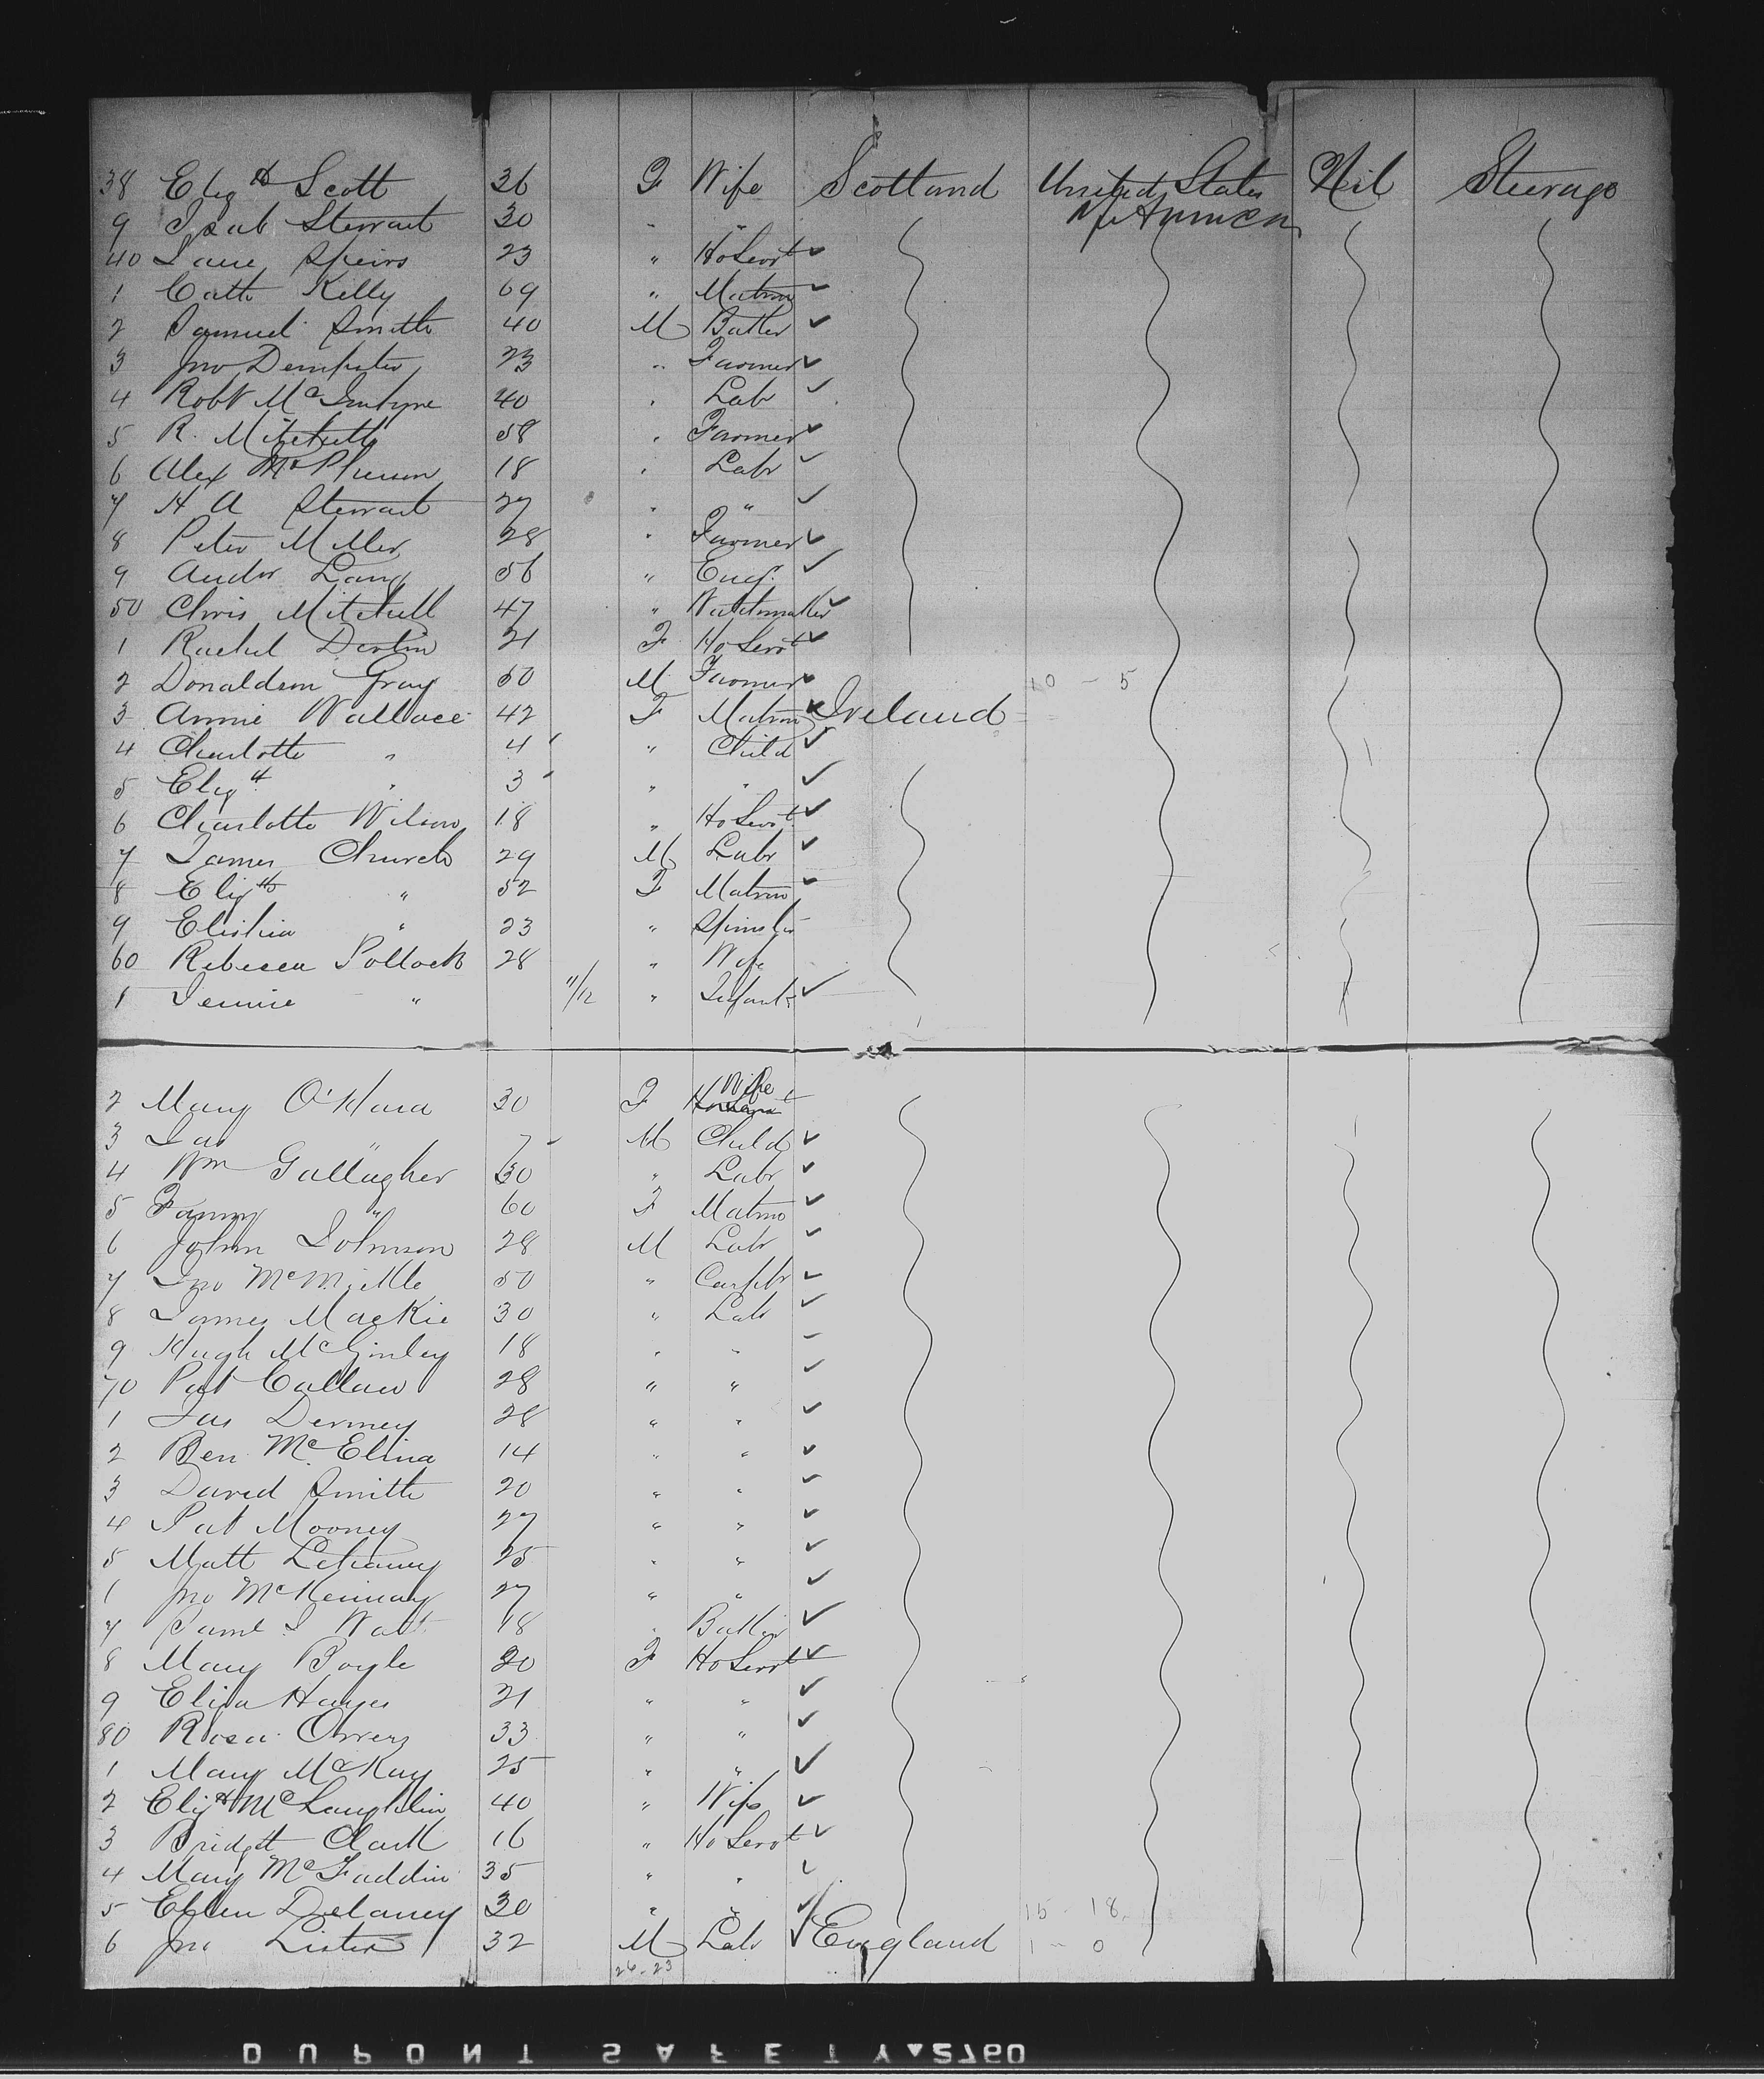 38 Elizth Scott 36 F Wife Scotland United States Nil Steerage
9 Isab Stewart 30 " " Not American
40 Jane Speirs 23 " Ho Servt ✓
1 Cath Kelly 69 " Matron ✓
2 Samuel Smith 40 M Butler ✓
3 Jno Dempster 23 " Farmer ✓
4 Robt McIntyre 40 " Labr ✓
5 R. Mitchell 58 " Farmer ✓
6 Alex McPherson 18 " Labr ✓
7 H A Stewart 27 " " ✓
8 Peter Miller 28 " Farmer ✓
9 Andw Lang 56 " Engr ✓
50 Chris Mitchell 47 " Watchmaker ✓
1 Rachel 21 F Ho Servt ✓
2 Donaldson Gray 50 M Farmer ✓ 10 - 5
3 Annie Wallace 42 F Matron ✓ Ireland
4 Charlotte " 4 " Child ✓
5 Elizth " 3 " " ✓
6 Charlotte Wilson 18 " Ho Servt ✓
7 James Church 29 M Labr ✓
8 Elizth " 52 F Matron ✓
9 " 23 " Spinster
60 Rebecca Pollock 28 " Wife
1 Jennie " 11/12 " Infant ✓
2 Mary O'Hara 30 F Wife
3 Jas " 7 M Child ✓
4 Wm Gallagher 30 " Labr ✓
5 Fanny " 60 F Matron ✓
6 John Johnson 28 M Labr ✓
7 Jno 50 " Carptr ✓
8 James Mackie 30 " Labr ✓
9 Hugh McGinley 18 " "
70 Pat Callan 28 " " ✓
1 Jas 28 " " ✓
2 Ben 14 " " ✓
3 David Smith 20 " " ✓
4 Pat Mooney 27 " " ✓
5 Matt 25 " " ✓
Jno 27 " " ✓
7 Saml J Watt 18 " ✓
8 Mary Boyle 20 F Ho Servt ✓
9 Eliza Hayes 21 " " ✓
80 Rosa 33 " " ✓
1 Mary McKay 25 " " ✓
2 Elizth McLaughlin 40 " Wife ✓
3 Bridgt Clark 16 " Ho Servt ✓
4 Mary McFaddin 35 " " ✓
5 Ellen Delaney 30 " " ✓ 15 - 18
6 Jno Lister 32 M Labr ✓ England 1 - 0
26-23
DUPONT SAFETY 2760